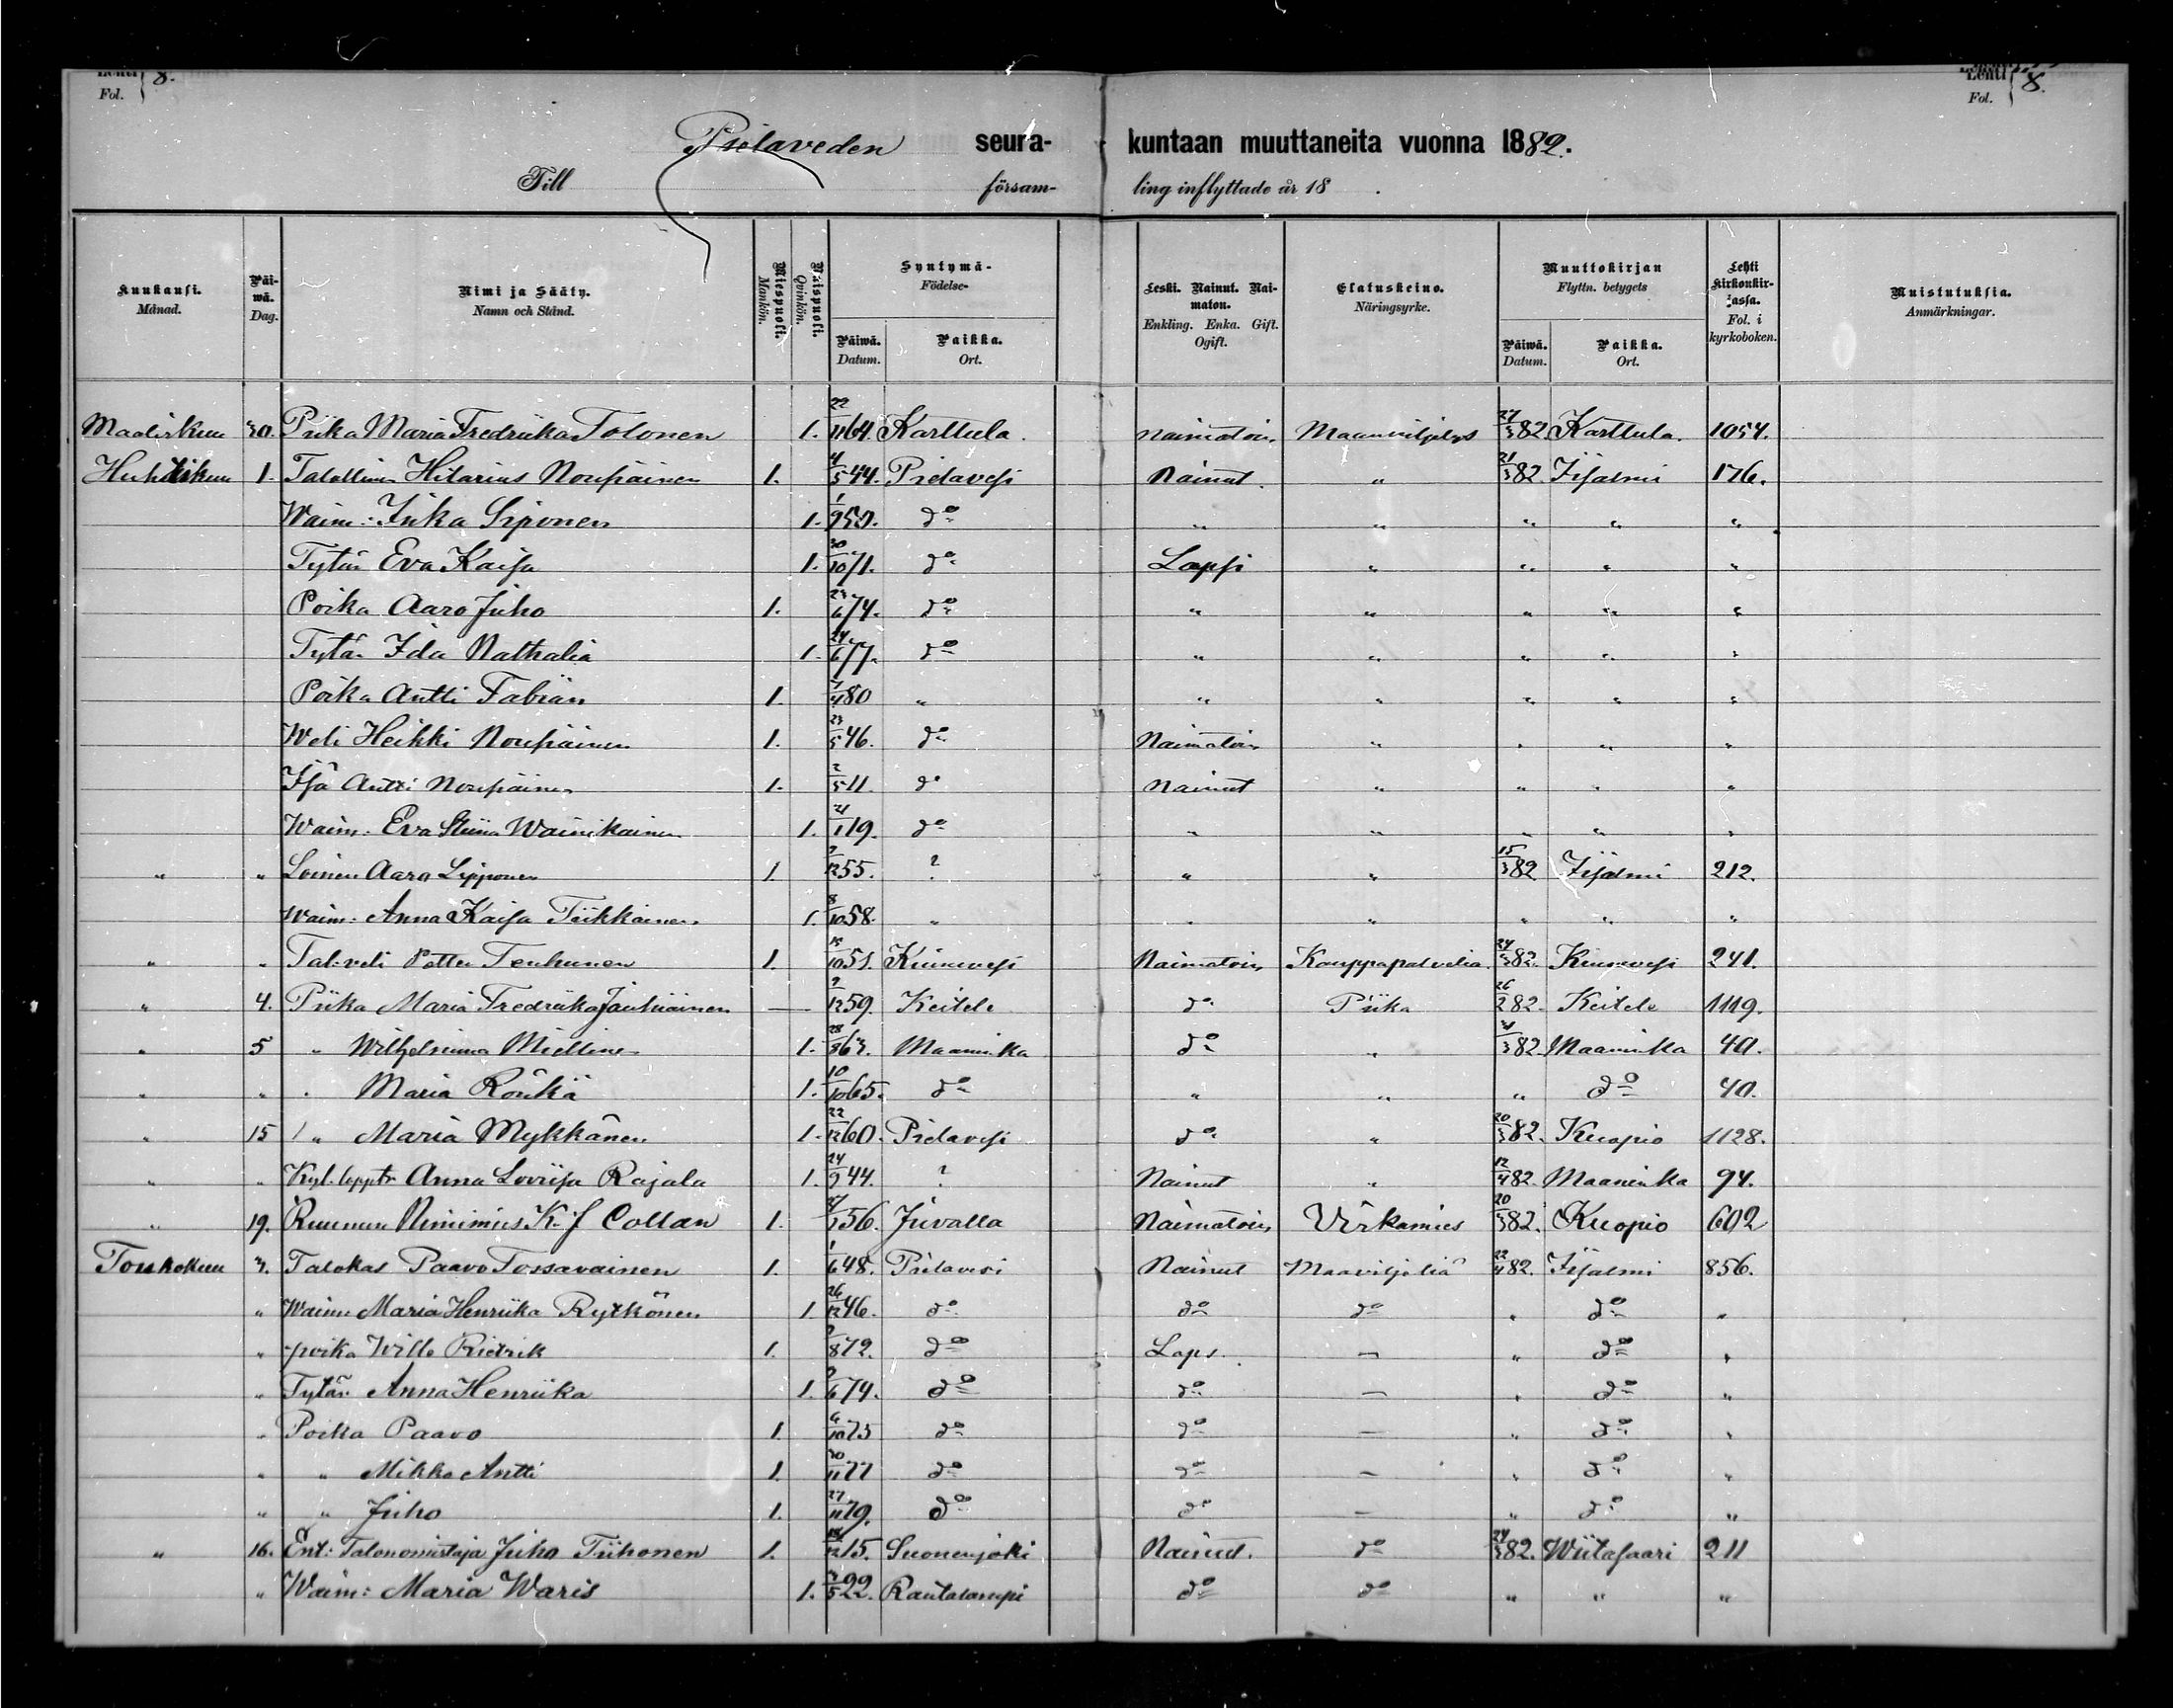 Lehti Fol. 8. Lehti Fol. 8.
Pielaveden seura- kuntaan muuttaneita vuonna 1882.
Till försam- ling inflyttade år 18 .
Kuukausi. Månad. Päi-wä. Dag. Nimi ja Sääty. Namn och Stånd. Miespuoli. Mankön. Waispuoli. Qvinkön. Syntymä- Födelse- Päiwä. Datum. Paikka. Ort. Leski. Nainut. Nai-maton. Enkling. Enka. Gift. Ogift. Elatuskeino. Näringsyrke. Muuttokirjan Flyttn. betygets Päiwä. Datum. Paikka. Ort. Lehti Kirkonkir-jassa. Fol. i kyrkoboken. Muistutuksia. Anmärkningar.
Maaliskuu 30. Piika Maria Fredriika Tolonen 1. 22/11 64. Karttula. naimatoin Maanviljelys 27/3 82 Karttula. 1054.
Huhtikuu 1. Talollinen Hilarius Noupiainen 1. 4/5 44. Pielavesi Nainut. " 21/3 82. Iisalmi 176.
Waim: Inka Siponen 1. 1/9 50. do " " " " "
Tytär Eva Kaisa 1. 30/10 71. do Lapsi " " " "
Poika Aaro Juho 1. 23/6 74. do " " " " "
Tytär Ida Nathalia 1. 24/6 77. do " " " " "
Poika Antti Fabian 1. 7/4 80 " " " " " "
Weli Heikki Noupiainen 1. 23/5 46. do Naimatoin " " " "
Isä Antti Noupiainen 1. 2/5 11. do Nainut " " " "
Waim: Eva Stiina Wainikainen 1. 21/1 19. do " " " " "
" " Loinen Aaro Lipponen 1. 7/12 55. ? " " 15/3 82 Iisalmi 212.
Waim: Anna Kaisa Tiikkainen. 1. 8/10 58. " " " " " "
" " Tal: veli Petter Tenhunen 1. 15/10 51. Kiuruvesi Naimatoin Kauppapalvelia. 24/3 82. Kiuruvesi 241.
" 4. Piika Maria Fredriika Jauhiainen — 9/12 59. Keitele do Piika 26/2 82. Keitele 1119.
" 5 " Wilhelmina Miettinen 1. 28/8 63. Maaninka do " 31/3 82. Maaninka 40.
" " " Maria Rönkä 1. 10/10 65. do " " " do 40.
" 15 " Maria Mykkänen 1. 22/12 60. Pielavesi do " 20/3 82. Kuopio 1128.
" " Anna Loviisa Rajala 1. 24/9 44. ? Nainut " 12/4 82. Maaninka 94.
" 19. Ruunun Nimimies K. J. Collan 1. 27/1 56. Juvalla Naimatoin Virkamies 20/3 82. Kuopio 602
Toukokuu 3. Talokas Paavo Tossavainen 1. 1/6 48. Pielavesi Nainut Maaviljeliä 22/4 82. Iisalmi 856.
" Waim: Maria Henriika Rytkönen 1. 26/12 46. do do do " do "
" poika Wille Rietrik 1. 9/8 72. do Laps. — " do "
" Tytär Anna Henriika 1. 9/6 74. do do — " do "
" Poika Paavo 1. 6/10 75 do do — " do "
" " Mikko Antti 1. 30/11 77 do do — " do "
" " Juho 1. 27/11 79. do do — " do "
" 16. Ent: Talonomistaja Juho Tiihonen 1. 12/12 15. Suonenjoki Nainut. do 24/3 82. Wiitasaari 211
" Waim: Maria Waris 1. 3/5 22. Rautalampi do do " " "